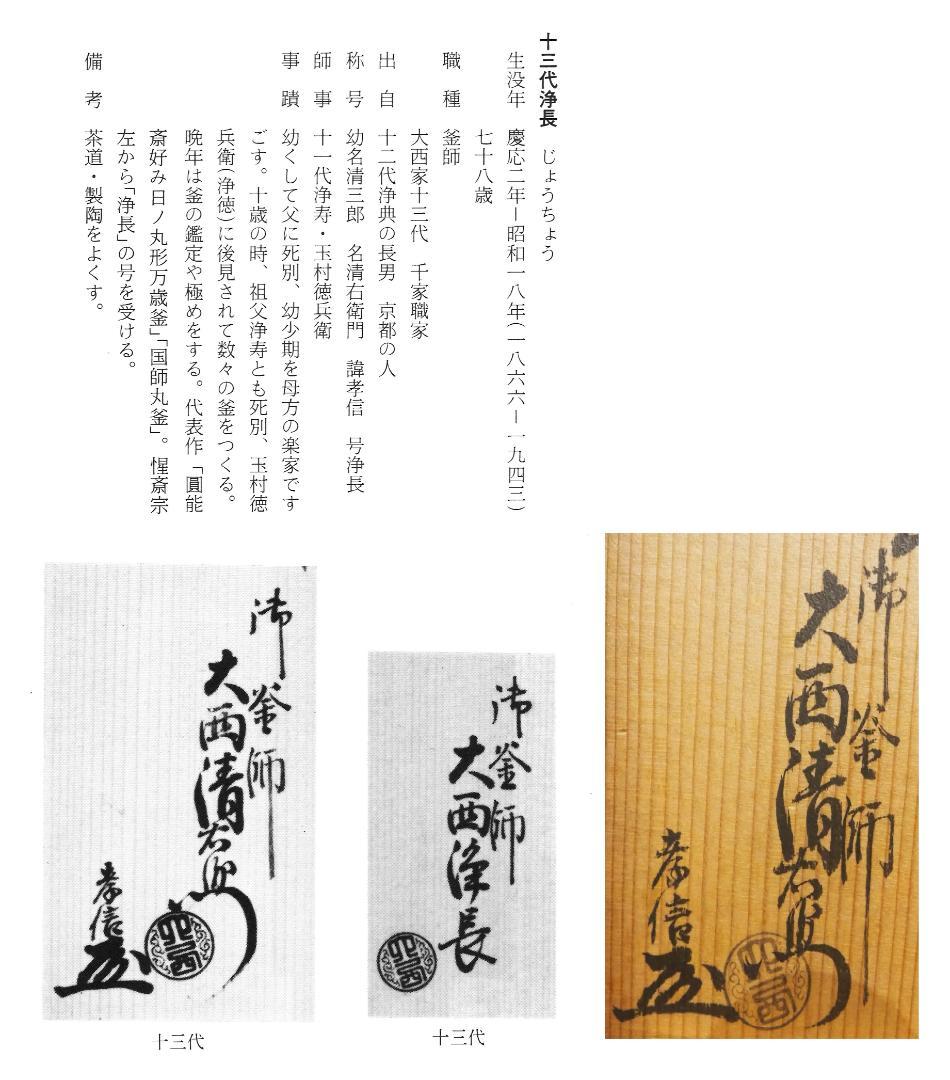 十三代浄長　じょうちょう
生没年　慶応二年－昭和一八年(一八六六－一九四三)
七十八歳
職　種　釜師
大西家十三代　千家職家
出　自　十二代浄典の長男　京都の人
称　号　幼名清三郎　名清右衛門　諱孝信　号浄長
師　事　十一代浄寿・玉村徳兵衛
事　蹟　幼くして父に死別、幼少期を母方の楽家です
ごす。十歳の時、祖父浄寿とも死別、玉村徳
兵衛(浄徳)に後見されて数々の釜をつくる。
晩年は釜の鑑定や極めをする。代表作「圓能
斎好み日ノ丸形万歳釜」「国師丸釜」。惺斎宗
左から「浄長」の号を受ける。
備　考　茶道・製陶をよくす。
御釜師
大西清右衛門
孝信
御釜師
大西浄長
大西
御釜師
大西清右衛門
孝信
十三代
十三代